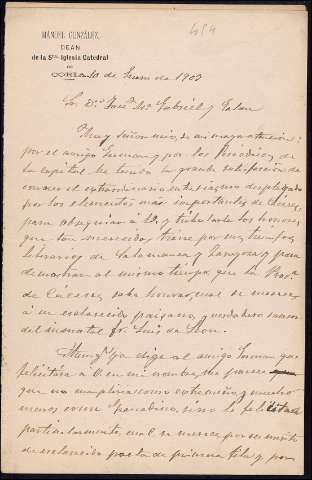 454
MANUEL GONZÁLEZ,
DEAN
de la Sta Iglesia Catedral
DE
CORIA 10 de Enero de 1903
Sr. Dn. José Ma Gabriel y Galán
Muy Señor mío, de mi mayor atención:
por el amigo Germán y por los Periódicos de
la capital he tenido la grande satisfacción de
conocer el extraordinario entusiasmo desplegado
por los elementos más importantes de Cáceres
para obsequiar á U. y tributarle los honores
que tan merecidos tiene por sus triunfos
literarios de Salamanca y Zaragoza y para
demostrar al mismo tiempo que la Prova.
de Cáceres sabe honrar, cual se merece
á un esclarecido paisano, y verdadero sucesor
del inmortal Fr. Luis de León.
Aunque ya dije al amigo Germán que
felicitara á U. en mi nombre, me parece
que no cumpliría como extremeño, y mucho
menos como Granadino, si no le felicitase
particularmente, cual se merece por su mérito
de esclarecido poeta de primera fila y por